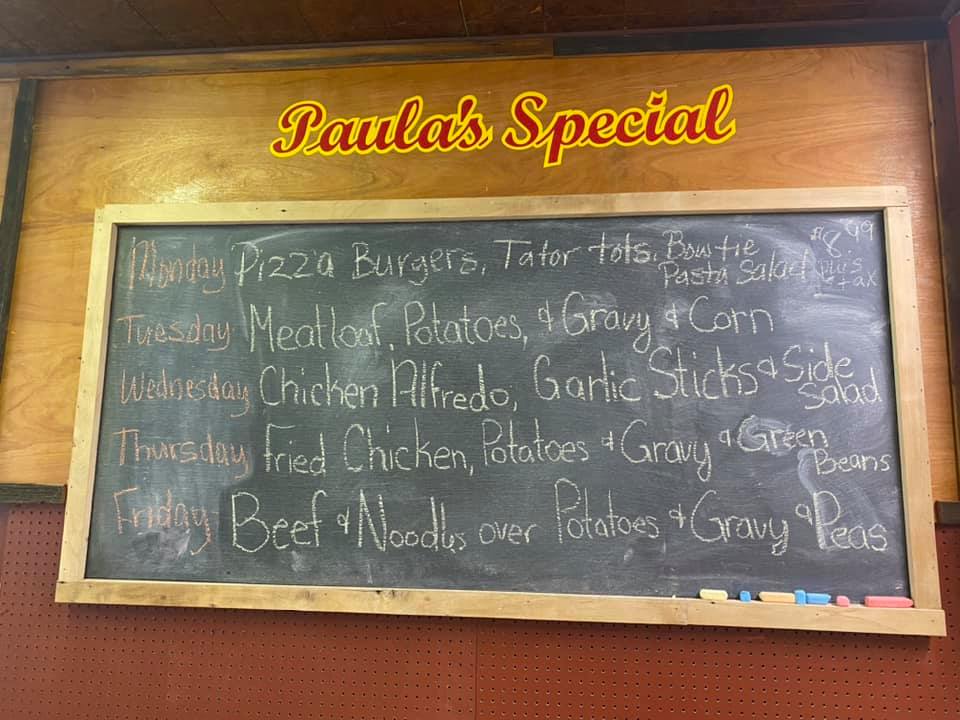 Paula's Special
Monday Pizza Burgers, Tator tots, Bowtie Pasta Salad $8.99 plus tax
Tuesday Meatloaf, Potatoes, & Gravy & Corn
Wednesday Chicken Alfredo, Garlic Sticks & Side Salad
Thursday Fried Chicken, Potatoes & Gravy & Green Beans
Friday Beef & Noodls over Potatoes & Gravy & Peas